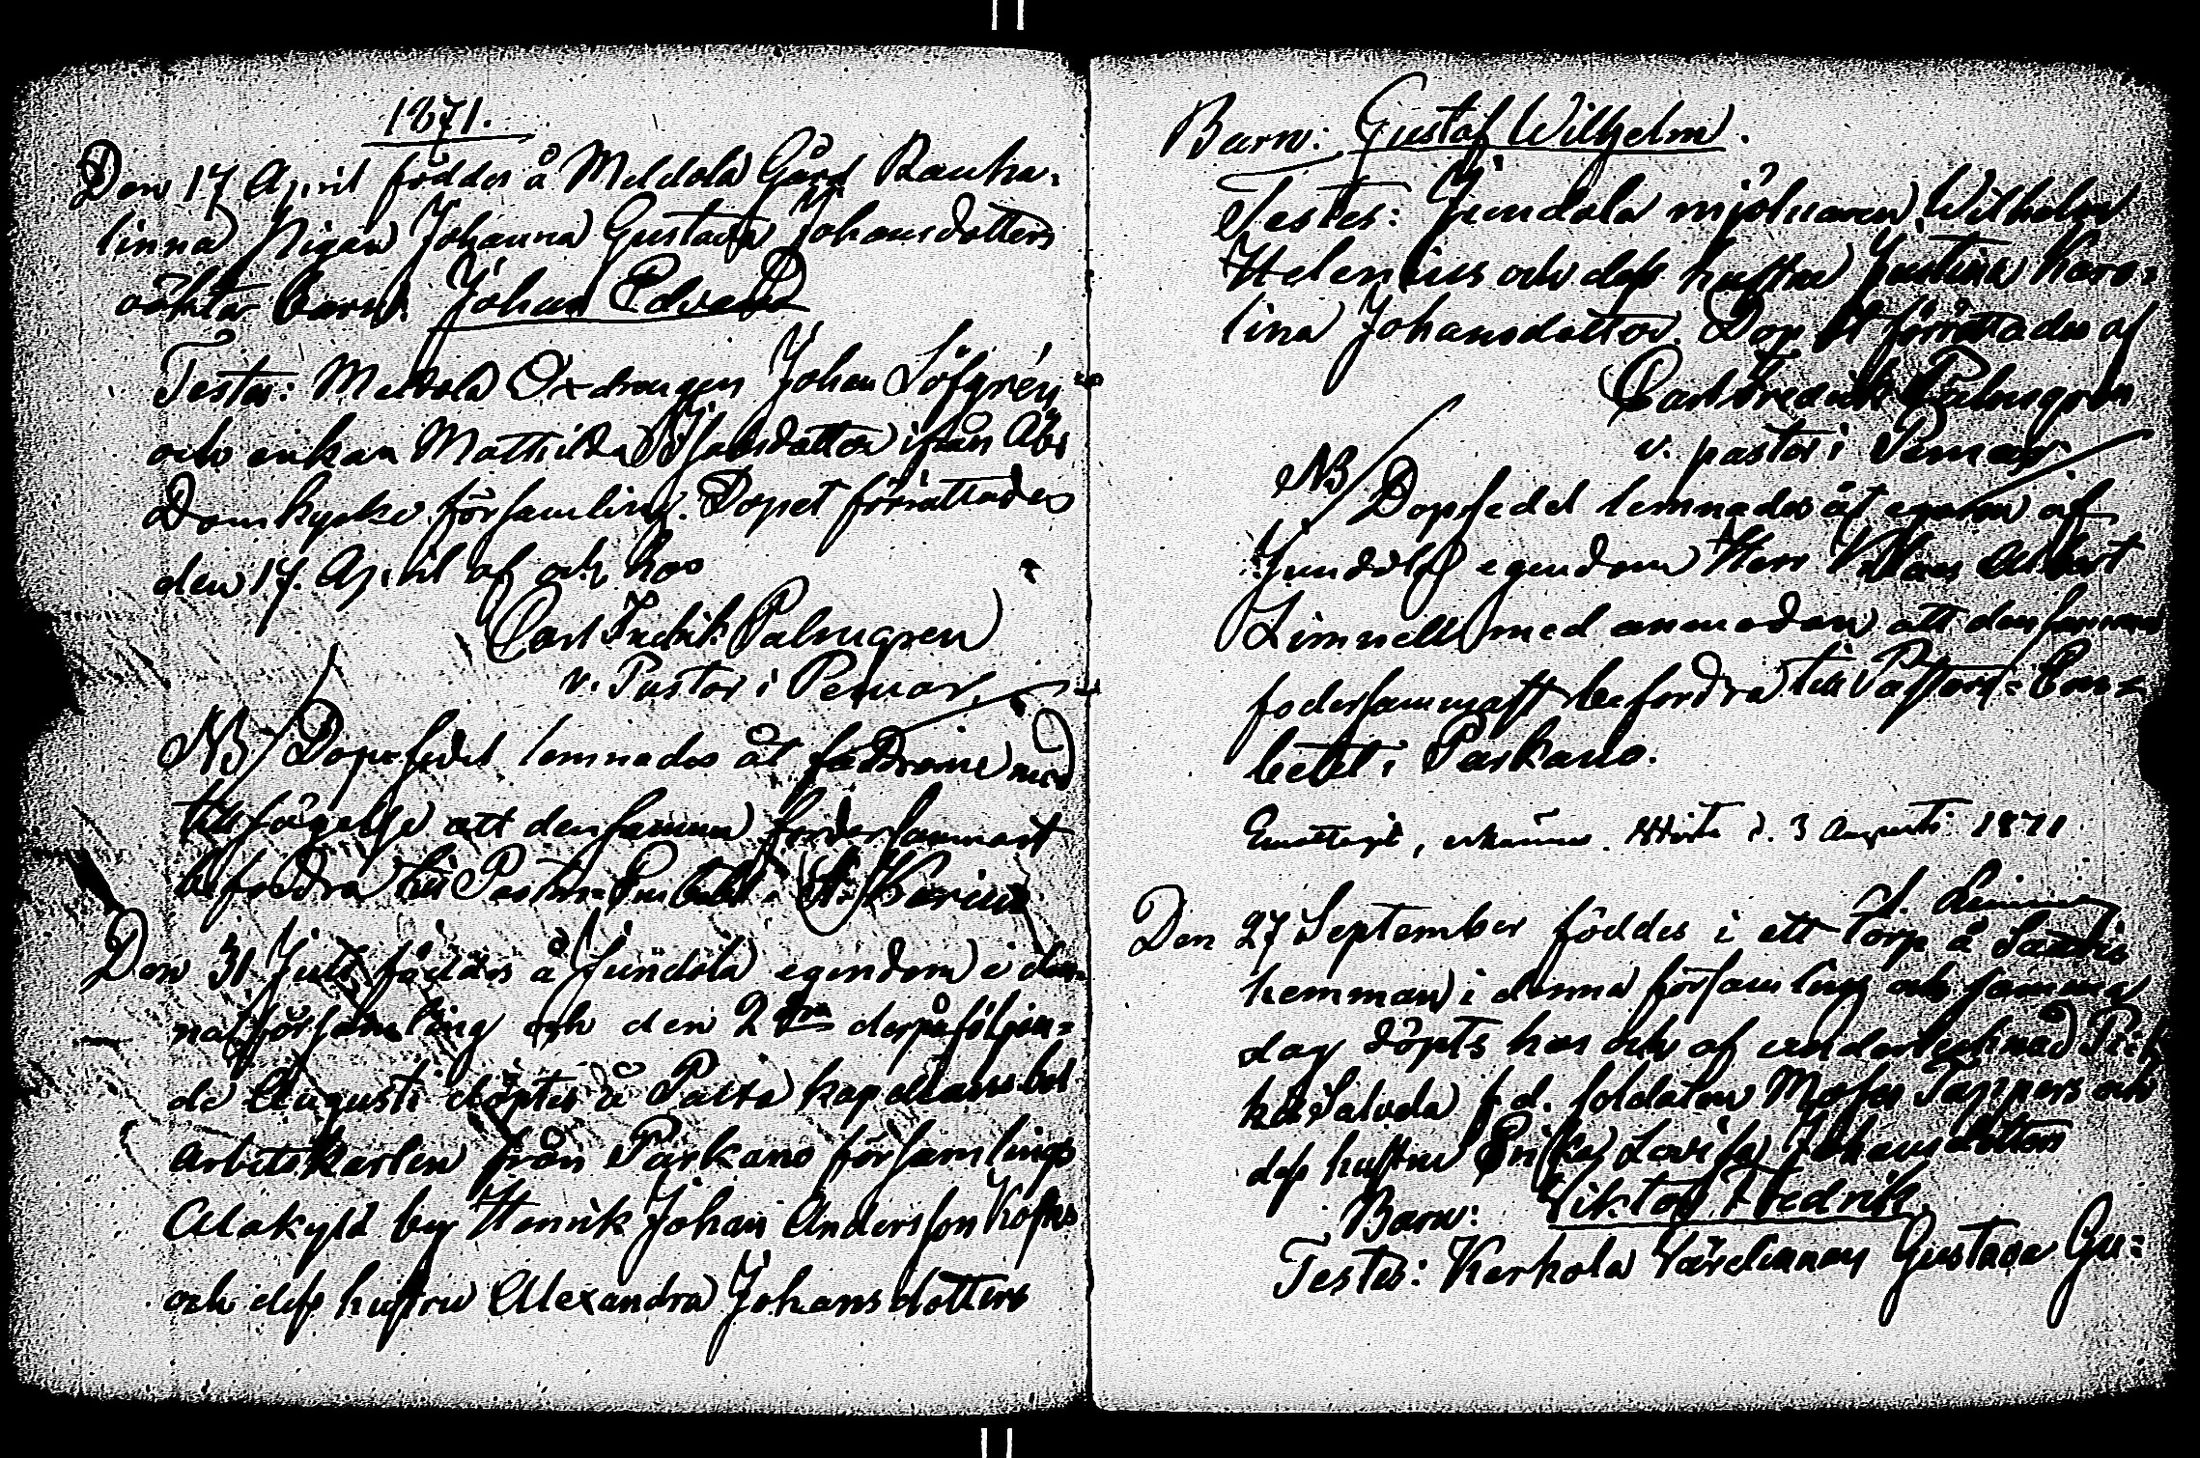 1871.
Den 17 April föddes å Meldola Gård Rauha-
linna Pigan Johanna Gustava Johansdotters
oäkta barn. Johan Edvard
Testes: Meldola Oxdrengen Johan Löfgrén
och enkan Mathilda Jakobsdotter ifrån Åbo
Domkyrko församling. Dopet förrättades
den 17. April af och hos
Carl Fredrik Palmgren
v. Pastor i Pemar.
NB Dopsedel lemnades åt faddrarne med
tillsägelse att densamma fordersammast
befordra till Pastors Embetet i St. Karins
Den 31 Juli föddes å Jundola egendom i den-
na församling och den 2dra derpåföljan-
de Augusti döptes å Paira kapellansbol
arbetskarlen från Parkano församlings
Alakylä by Henrik Johan Andersson
och dess hustru Alexandra Johansdotters
Barn: Gustaf Wilhelm.
Testes: Jundola mjölnaren Wilhelm
Helenius och dess hustru Justina Karo-
lina Johansdotter. Dopet förrättades af
Carl Fredrik Palmgren
v. pastor i Pemar.
NB Dopsedel lemnades åt egaren af
Jundola egendom Herr Albert
Limnell med anmodan att densamma
fodersammast befordra till Pastors-Em-
betet i Parkano.
Emottagit, erkännes d. 3 Augusti 1871
A. Limnell
Den 27 September föddes i ett torp å
hemman i denna församling och samma
dag döpts hos och af undertecknad
f.d. soldaten Moses Tappers och
dess hustru Erika Lovisa Johansdotters
Barn: Viktor Fredrik.
Testes: Kerkola Värdinnan Gustava Gu-